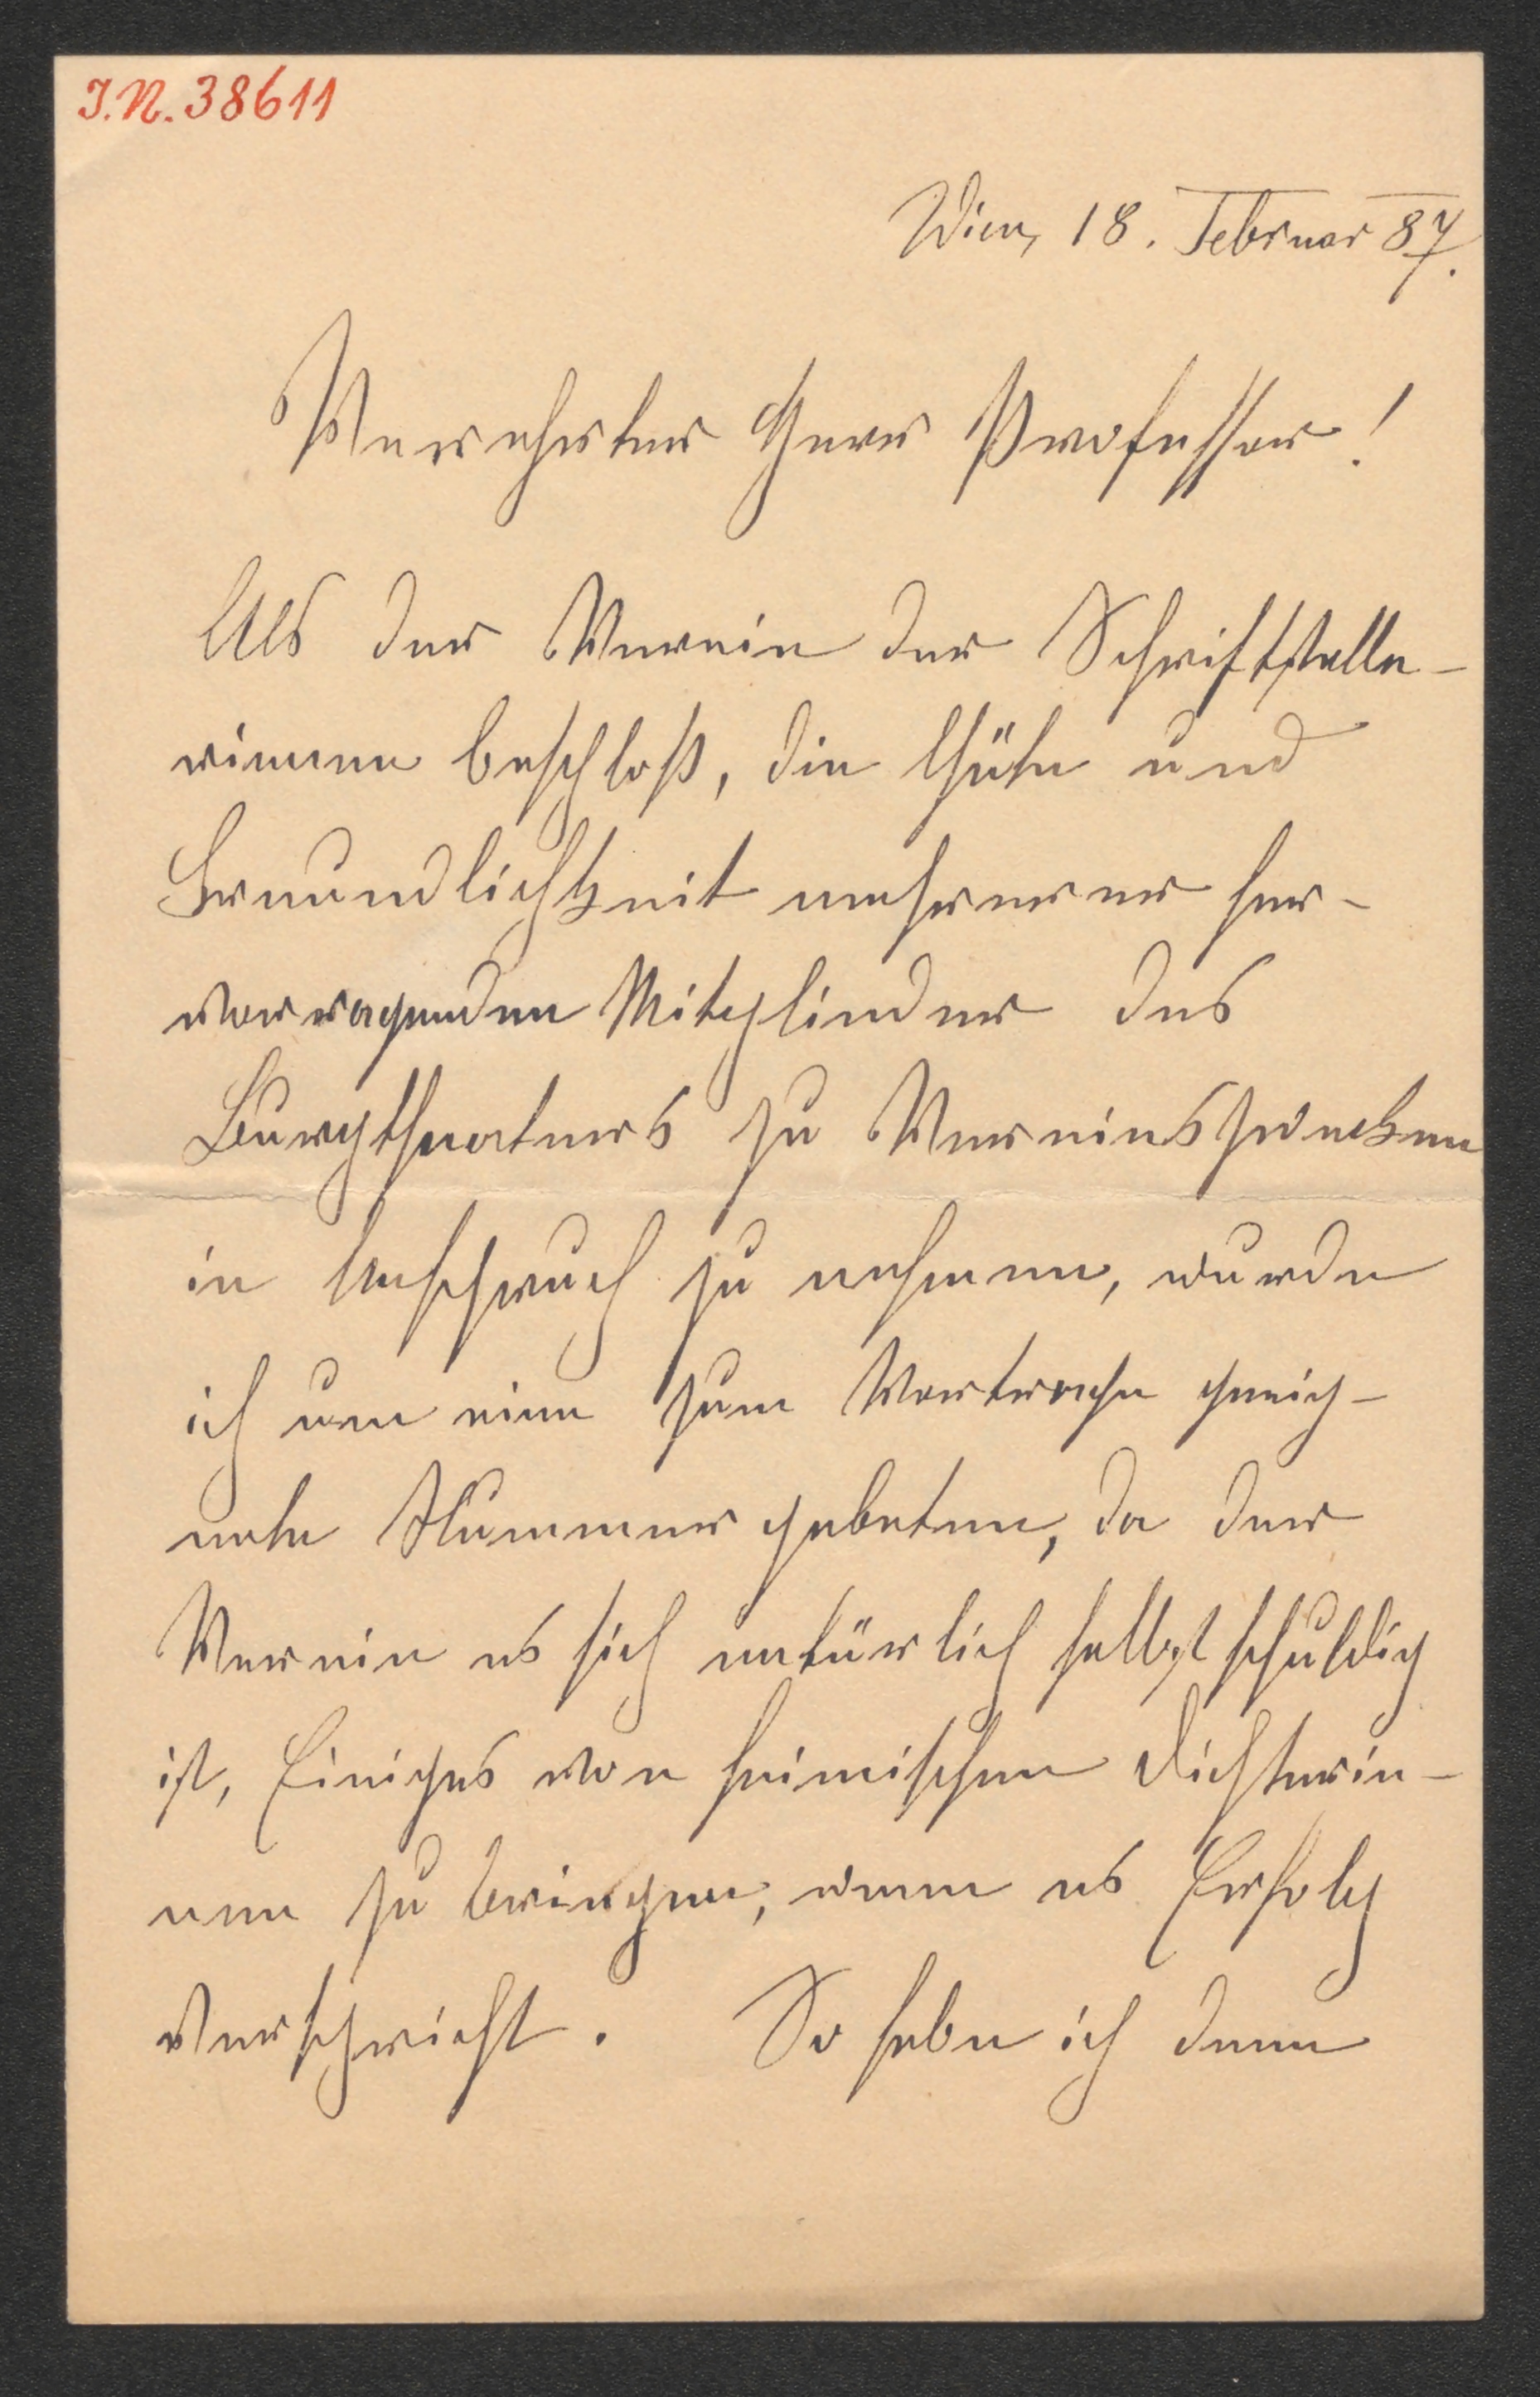 I.N. 38611
Wien, 18. Februar 87.
Verehrter Herr Professor!
Als der Verein der Schriftstelle-
rinnen beschloß, die Güte und
Freundlichkeit mehrerer her-
vorragenden Mitglieder des
Burgtheaters zu Vereinszwecken
in Anspruch zu nehmen, wurde
ich um eine zum Vortrage geeig-
nete Nummer gebeten, da der
Verein es sich natürlich selbst schuldig
ist, Einiges von heimischen Dichterin-
nen zu bringen, wenn es Erfolg
verspricht. So habe ich denn